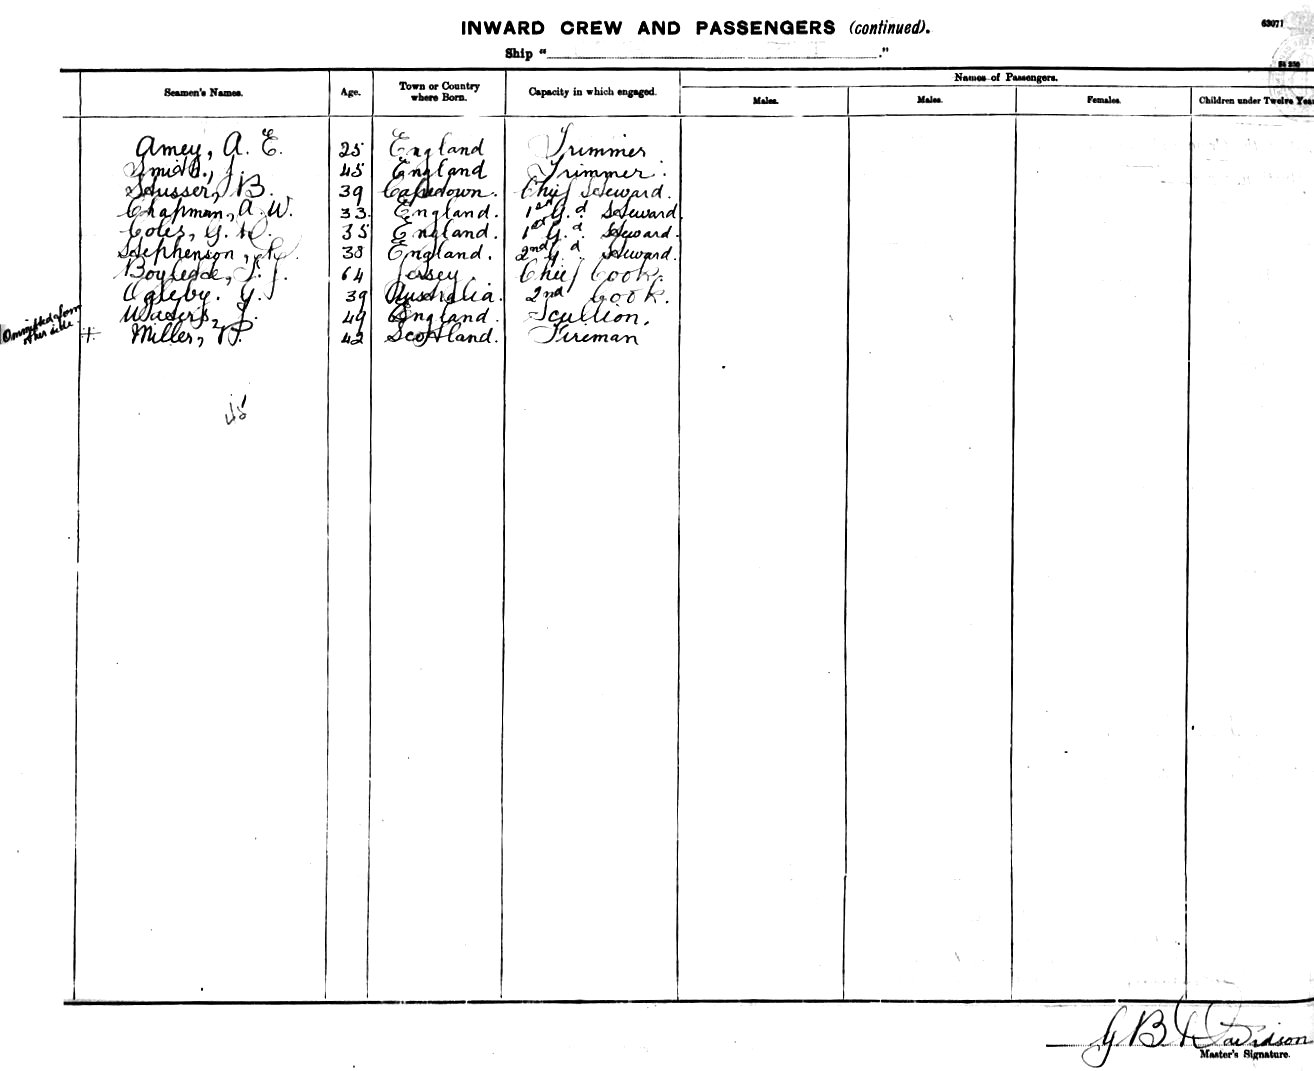 63071
INWARD CREW AND PASSENGERS (continued).
Ship " "
Seamen's Names. Age. Town or Country where Born. Capacity in which engaged. Names of Passengers.
Males. Males. Females. Children under Twelve Yea
Amey, A. E. 25 England Trimmer
Smith, J. 45 England Trimmer.
Slusser, B. 39 Capetown. Chief Steward.
Chapman, A. W. 33. England. 1st G.d Steward
Coles, G. 35 England. 1st G.d Steward.
Stephenson, 38 England. 2nd G.d Steward.
64 Jersey. Chief Cook.
Ogleby. G. 39 Australia. 2nd Cook.
Waters, J. 49 England. Scullion.
Ommitted from other side + Miller, P. 42 Scotland. Fireman
45
G B Davidson
Master's Signature.